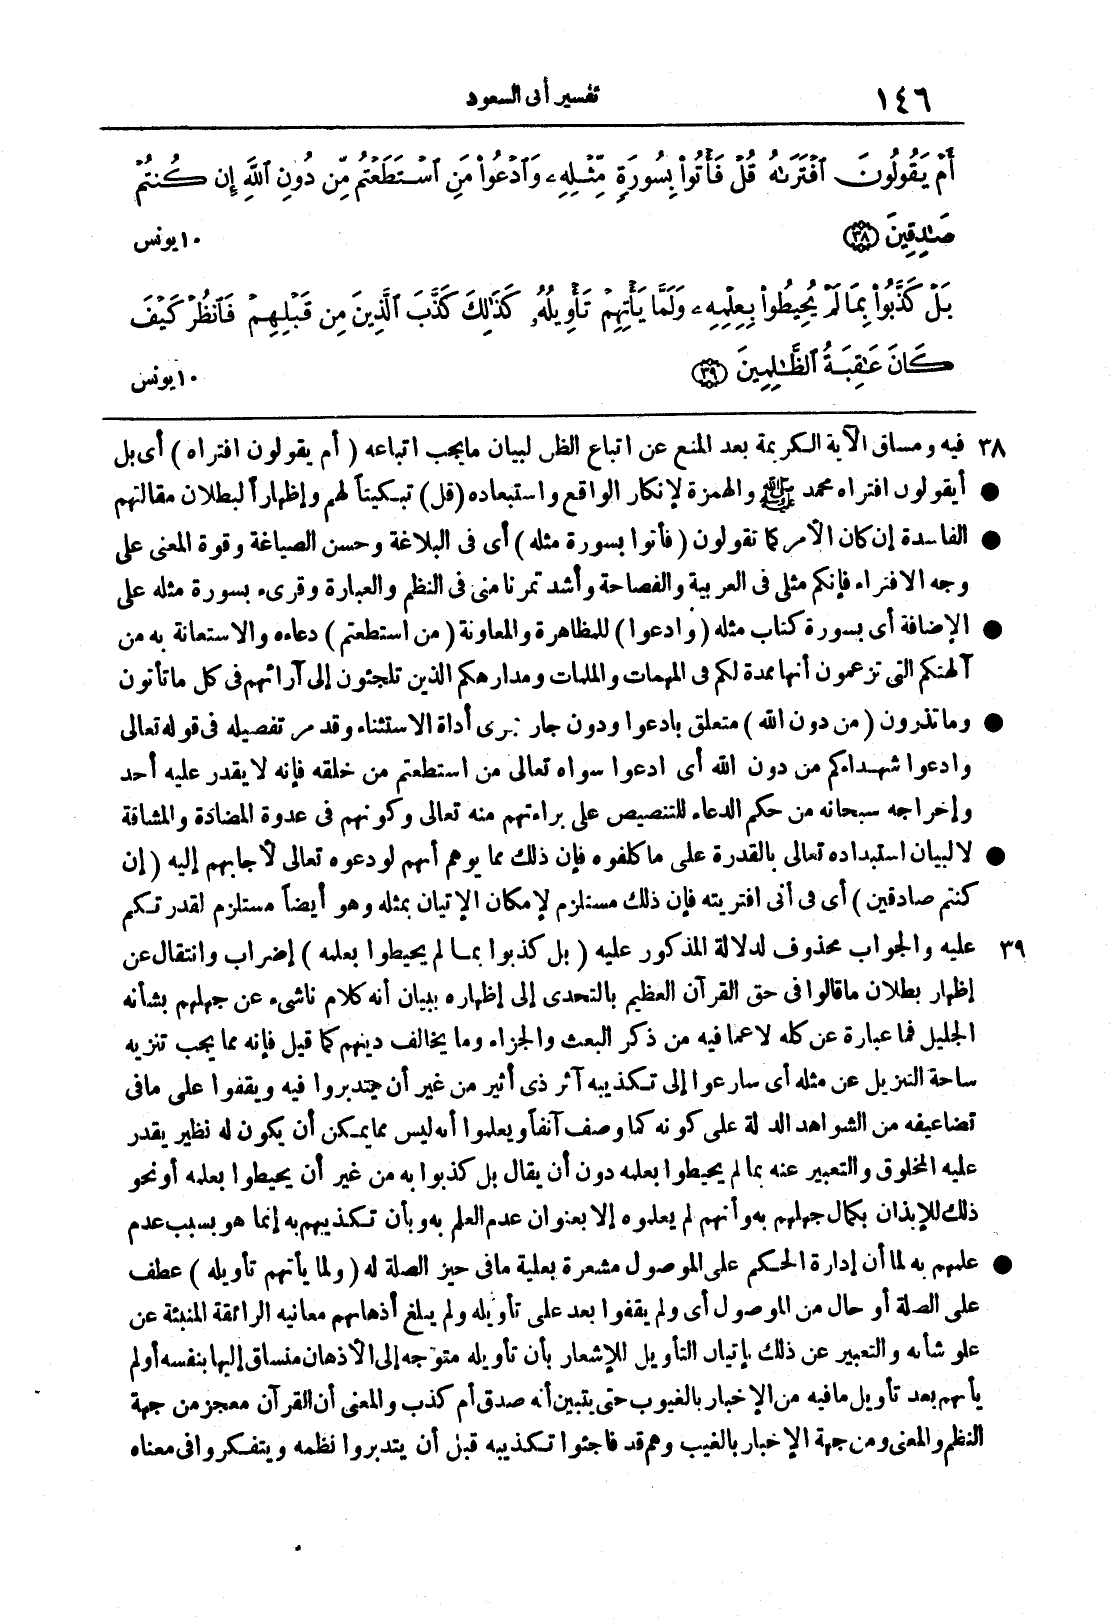 ١٤٦ تفسير أبى السعود
أَمْ يَقُولُونَ ٱفْتَرَىٰهُ قُلْ فَأْتُوا۟ بِسُورَةٍ مِّثْلِهِۦ وَٱدْعُوا۟ مَنِ ٱسْتَطَعْتُم مِّن دُونِ ٱللَّهِ إِن كُنتُمْ
صَـٰدِقِينَ ﴿٣٨﴾ ١٠ يونس
بَلْ كَذَّبُوا۟ بِمَا لَمْ يُحِيطُوا۟ بِعِلْمِهِۦ وَلَمَّا يَأْتِهِمْ تَأْوِيلُهُۥ كَذَٰلِكَ كَذَّبَ ٱلَّذِينَ مِن قَبْلِهِمْ فَٱنظُرْ كَيْفَ
كَانَ عَـٰقِبَةُ ٱلظَّـٰلِمِينَ ﴿٣٩﴾ ١٠ يونس
٣٨ فيه ومساق الآية الكريمة بعد المنع عن اتباع الظن لبيان مايجب اتباعه ( أم يقولون افتراه ) أى بل
● أيقولون افتراه محمد ﷺ والهمزة لإنكار الواقع واستبعاده (قل) تبكيتاً لهم وإظهاراً لبطلان مقالتهم
● الفاسدة إن كان الأمر كما تقولون ( فأتوا بسورة مثله ) أى فى البلاغة وحسن الصياغة وقوة المعنى على
وجه الافتراء فإنكم مثلى فى العربية والفصاحة وأشد تمرنا منى فى النظم والعبارة وقرىء بسورة مثله على
● الإضافة أى بسورة كتاب مثله ( وادعوا ) للمظاهرة والمعاونة ( من استطعتم ) دعاءه والاستعانة به من
آلهتكم التى تزعمون أنها ممدة لكم فى المهمات والملمات ومدارهكم الذين تلجئون إلى آرائهم فى كل ماتأتون
● وماتذرون ( من دون الله ) متعلق بادعوا ودون جار مجرى أداة الاستثناء وقد مر تفصيله فى قوله تعالى
وادعوا شهداءكم من دون الله أى ادعوا سواه تعالى من استطعتم من خلقه فإنه لا يقدر عليه أحد
وإخراجه سبحانه من حكم الدعاء للتنصيص على براءتهم منه تعالى وكونهم فى عدوة المضادة والمشاقة
● لا لبيان استبداده تعالى بالقدرة على ماكلفوه فإن ذلك مما يوهم أنهم لو دعوه تعالى لأجابهم إليه ( إن
كنتم صادقين ) أى فى أنى افتريته فإن ذلك مستلزم لإمكان الإتيان بمثله وهو أيضاً مستلزم لقدرتكم
٣٩ عليه والجواب محذوف لدلالة المذكور عليه ( بل كذبوا بما لم يحيطوا بعلمه ) إضراب وانتقال عن
إظهار بطلان ماقالوا فى حق القرآن العظيم بالتحدى إلى إظهاره ببيان أنه كلام ناشىء عن جهلهم بشأنه
الجليل فما عبارة عن كله لا عما فيه من ذكر البعث والجزاء وما يخالف دينهم كما قيل فإنه مما يجب تنزيه
ساحة التنزيل عن مثله أى سارعوا إلى تكذيبه آثر ذى أثير من غير أن يتدبروا فيه ويقفوا على مافى
تضاعيفه من الشواهد الدالة على كونه كما وصف آنفاً ويعلموا أنه ليس مما يمكن أن يكون له نظير يقدر
عليه المخلوق والتعبير عنه بما لم يحيطوا بعلمه دون أن يقال بل كذبوا به من غير أن يحيطوا بعلمه أو نحو
ذلك للإيذان بكمال جهلهم به وأنهم لم يعلموه إلا بعنوان عدم العلم به وبأن تكذيبهم به إنما هو بسبب عدم
● علمهم به لما أن إدارة الحكم على الموصول مشعرة بعلية مافى حيز الصلة له ( ولما يأتهم تأويله ) عطف
على الصلة أو حال من الموصول أى ولم يقفوا بعد على تأويله ولم يبلغ أذهانهم معانيه الرائقة المنبئة عن
علو شأنه والتعبير عن ذلك بإتيان التأويل للإشعار بأن تأويله متوجه إلى الأذهان منساق إليها بنفسه أو لم
يأتهم بعد تأويل مافيه من الإخبار بالغيوب حتى يتبين أنه صدق أم كذب والمعنى أن القرآن معجز من جهة
النظم والمعنى ومن جهة الإخبار بالغيب وهم قد فاجئوا تكذيبه قبل أن يتدبروا نظمه ويتفكروا فى معناه